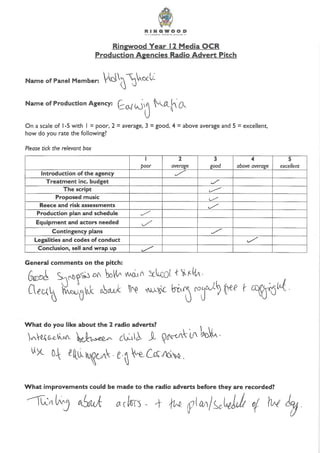 RINGWOOD
Ringwood Year 12 Media OCR
Production Agencies Radio Advert Pitch
Name of Panel Member: Holly
Name of Production Agency: Earwig Mafia
On a scale of 1-5 with 1 = poor, 2 = average, 3 = good, 4 = above average and 5 = excellent,
how do you rate the following?
Please tick the relevant box
1 2 3 4 5
poor average good above average excellent
Introduction of the agency ✓
Treatment inc. budget ✓
The script ✓
Proposed music ✓
Reece and risk assessments ✓
Production plan and schedule ✓
Equipment and actors needed ✓
Contingency plans ✓
Legalities and codes of conduct ✓
Conclusion, sell and wrap up ✓
General comments on the pitch:
Good Synopsis on both main school + sixth.
Clearly thought about the music being royalty free + copyright.
What do you like about the 2 radio adverts?
Interaction between child & parent in both.
Use of equipment. e.g the
What improvements could be made to the radio adverts before they are recorded?
Thinking about actors. + the plan/schedule of the day.